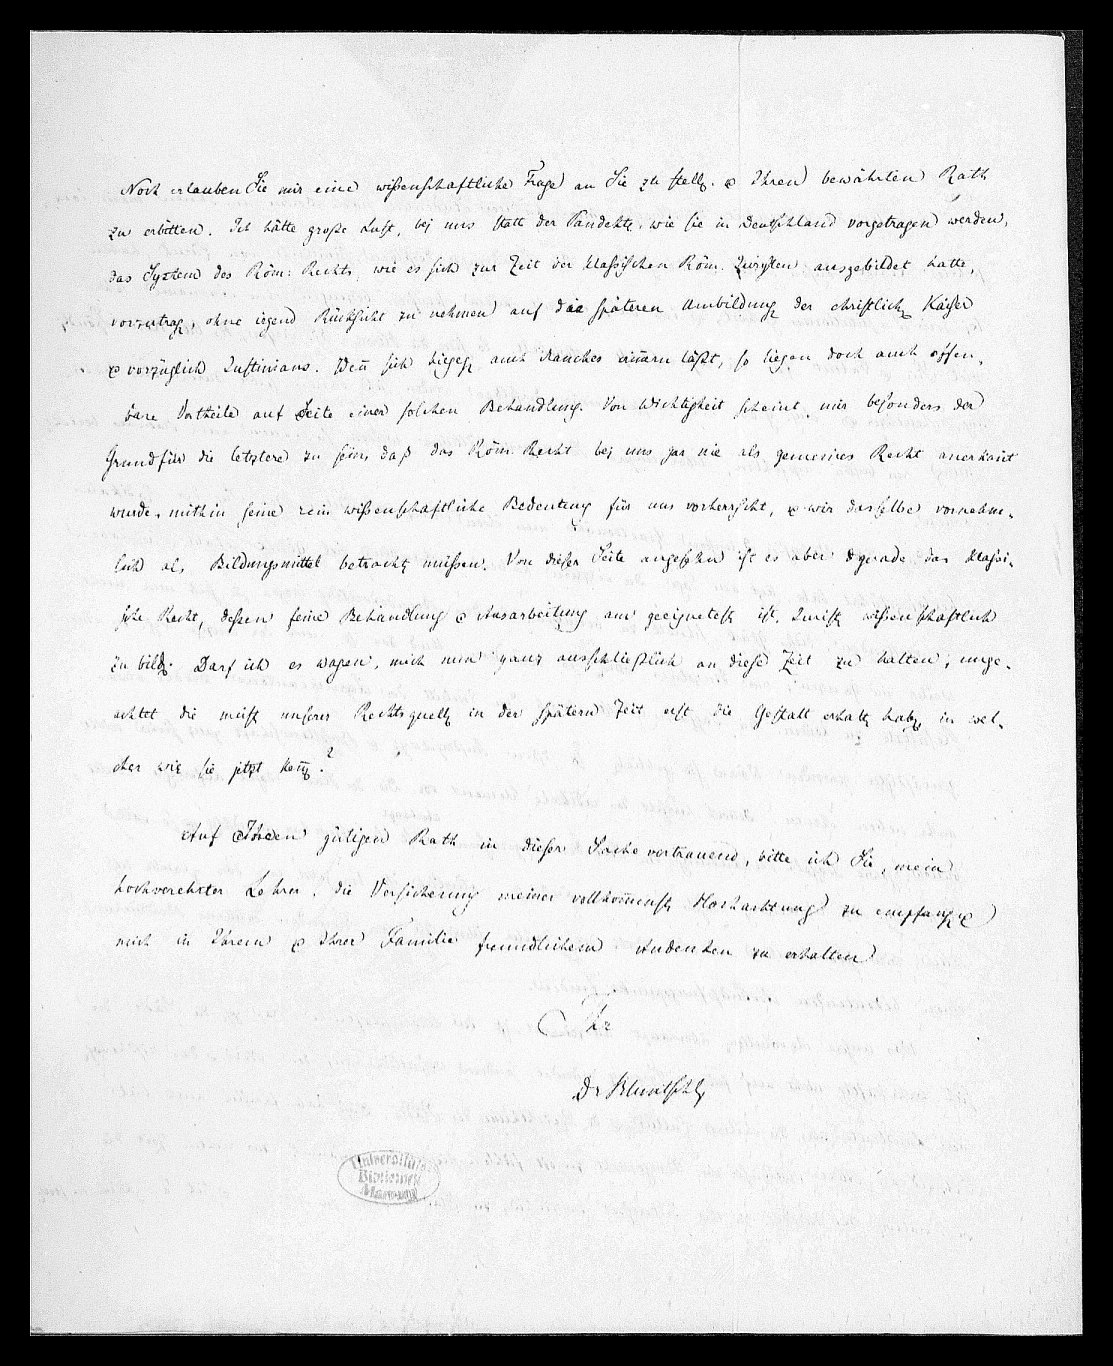 Noch erlauben Sie mir eine wißenschaftliche Frage an Sie zu stellen & Ihren bewährten Rath
zu erbitten. Ich hätte große Lust, bej uns statt der Pandekten, wie sie in Deutschland vorgetragen werden,
das System des Röm: Rechts wie es sich zur Zeit der klassischen Röm. Juristen ausgebildet hatte,
vorzutragen, ohne irgend Rücksicht zu nehmen auf die späteren Umbildungen der christlichen Kaiser
& vorzüglich Justinians. Wen̄ sich hiegegen auch Manches erin̄ern läßt, so liegen doch auch offen-
bare Vortheile auf Seite einer solchen Behandlung. Von Wichtigkeit scheint mir besonders der
Grund für die letztere zu sein, daß das Röm. Recht bej uns gar nie als gemeines Recht anerkan̄t
wurde, mithin seine rein wißenschaftliche Bedeutung für uns vorherrscht, & wir dasselbe vornehm-
lich als Bildungsmittel betrachten müßen. Von dieser Seite angesehen ist es aber gerade das klassi-
sche Recht, deßen feine Behandlung & Ausarbeitung am geeignetesten ist, Juristen wißenschaftlich
zu bilden. Darf ich es wagen, mich nun ganz ausschließlich an diese Zeit zu halten, unge-
achtet die meisten unserer Rechtsquellen in der spätern Zeit erst die Gestalt erhalten haben, in wel-
cher wir sie jetzt ken̄en?
Auf Ihren gütigen Rath in dieser Sache vertrauend, bitte ich Sie, mein
hochverehrter Lehrer, die Versicherung meiner vollkom̄ensten Hochachtung zu empfangen &
mich in Ihrem & Ihrer Familie freundlichem Andenken zu erhalten
Ihr
Dr Bluntschli
Universitäts
Bibliothek
Marburg